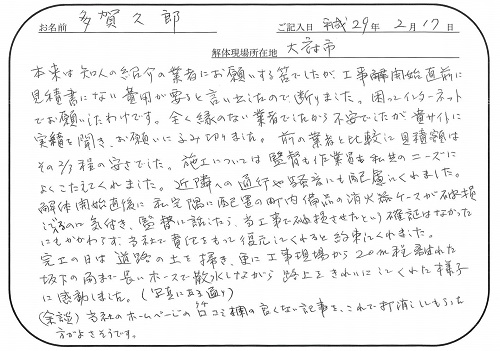 お名前 多賀久郎 ご記入日 平成29年2月17日
解体現場所在地 大府市
本来は知人の紹介の業者にお願いする筈でしたが、工事開始直前に
見積書にない費用が要ると言い出したので断りました。困ってインターネット
でお願いしたわけです。全く縁のない業者でしたから不安でしたが貴サイトに
実績を聞き、お願いにふみ切りました。前の業者と比較し見積額は
その2/3程の安さでした。施工については監督も作業員も私共のニーズに
よくこたえてくれました。近隣への通行や騒音にも配慮してくれました。
解体開始直後に私宅隣に配置の町内備品の消火器ケースが破損
しているのに気付き、監督に話したら、当工事で破損させたという確証はなかった
にもかかわらず、当社で責任をもって復元してくれると約束してくれました。
完工の日は道路の土を掃き、更に工事現場から20m程離れた
坂下の角まで長いホースで散水しながら路上をきれいにしてくれた様子
に感動しました。(写真にある通り)
(余談) 当社のホームページの口コミ欄の良くない記事を、これで打消してもらった
方がよさそうです。